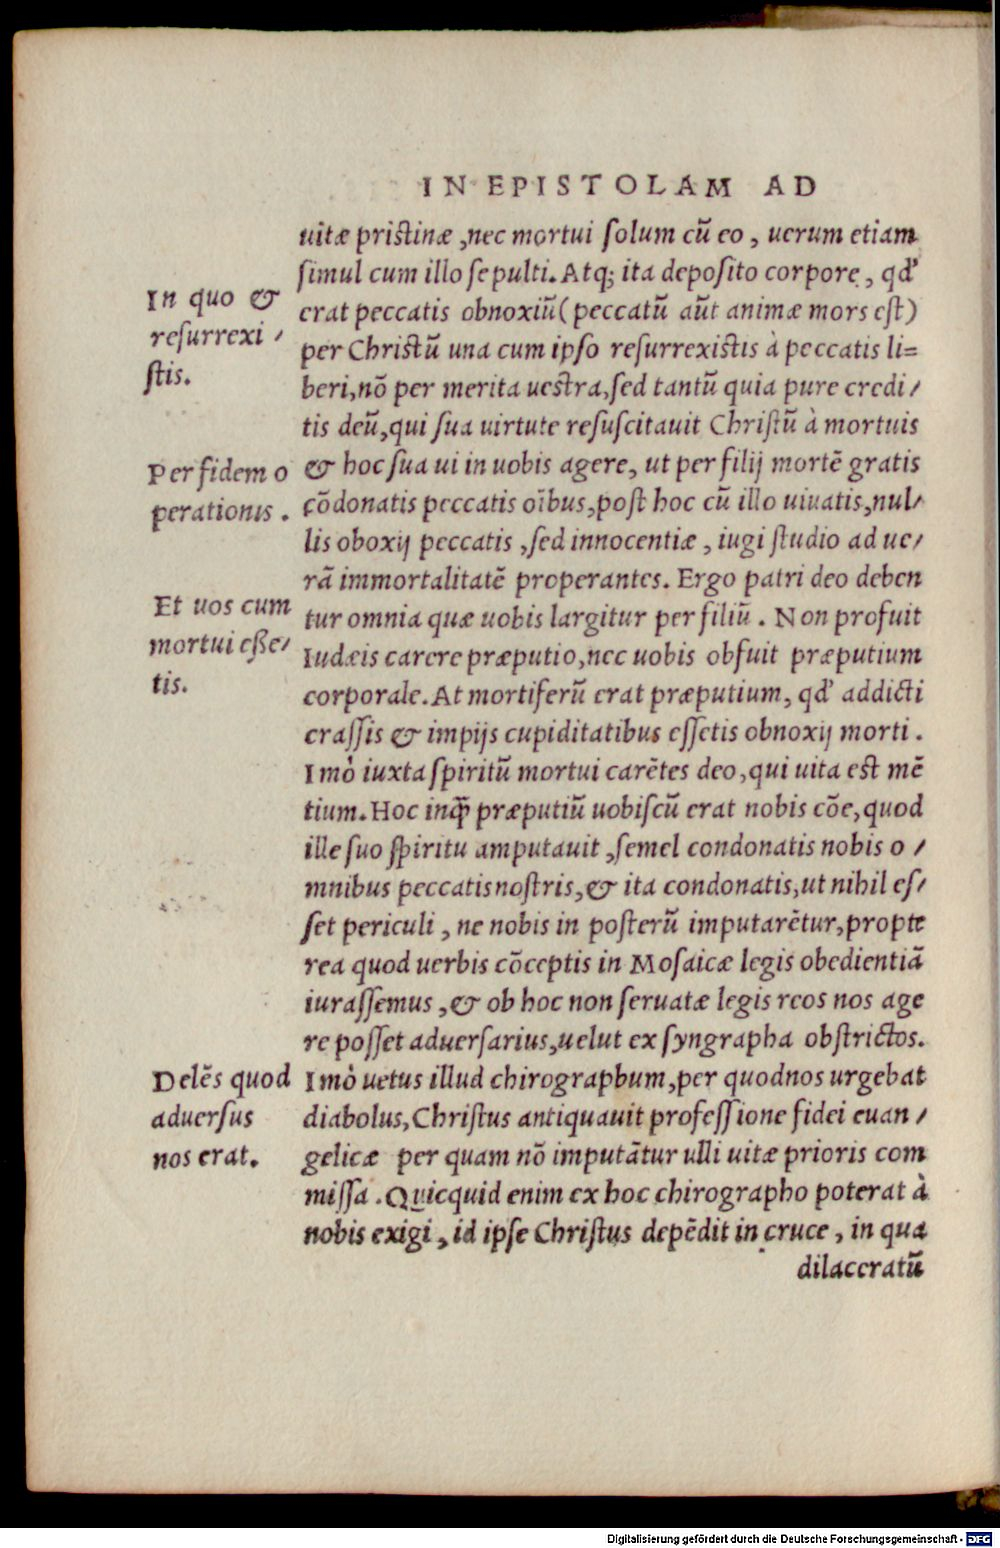 IN EPISTOLAM AD
uitæ pristinæ, nec mortui ſolum cũ eo, uerum etiam
ſimul cum illo ſepulti. Atq; ita depoſito corpore, qd'
In quo &
erat peccatis obnoxiũ (peccatũ aũt animæ mors eſt)
reſurrexi /
per Chriſtũ una cum ipſo reſurrexiſtis à peccatis li=
ſtis.
beri, nõ per merita ueſtra, ſed tantũ quia pure credi/
tis deũ, qui ſua uirtute reſuſcitauit Chriſtũ à mortuis
Per fidem o
& hoc ſua ui in uobis agere, ut per filij mortẽ gratis
perationis.
cõdonatis peccatis oĩbus, poſt hoc cũ illo uiuatis, nul/
lis oboxij peccatis, ſed innocentiæ, iugi ſtudio ad ue/
rã immortalitatẽ properantes. Ergo patri deo deben
Et uos cum
tur omnia quæ uobis largitur per filiũ. Non profuit
mortui eſſe/
Iudæis carere præputio, nec uobis obfuit præputium
tis.
corporale. At mortiferũ erat præputium, qd' addicti
craſſis & impijs cupiditatibus eſſetis obnoxij morti.
Imò iuxta ſpiritũ mortui carẽtes deo, qui uita eſt mẽ
tium. Hoc inq̃ præputiũ uobiſcũ erat nobis cõe, quod
ille ſuo ſpiritu amputauit, ſemel condonatis nobis o /
mnibus peccatis noſtris, & ita condonatis, ut nihil eſ/
ſet periculi, ne nobis in poſterũ imputarẽtur, propte
rea quod uerbis cõceptis in Moſaicæ legis obedientiã
iuraſſemus, & ob hoc non ſeruatæ legis reos nos age
re poſſet aduerſarius, uelut ex ſyngrapha obſtrictos.
Delẽs quod
Imò uetus illud chirographum, per quod nos urgebat
aduerſus
diabolus, Chriſtus antiquauit profeſſione fidei euan /
nos erat.
gelicæ per quam nõ imputãtur ulli uitæ prioris com
miſſa. Quicquid enim ex hoc chirographo poterat à
nobis exigi, id ipſe Chriſtus depẽdit in cruce, in qua
dilaceratũ
Digitalisierung gefördert durch die Deutsche Forschungsgemeinschaft - DFG